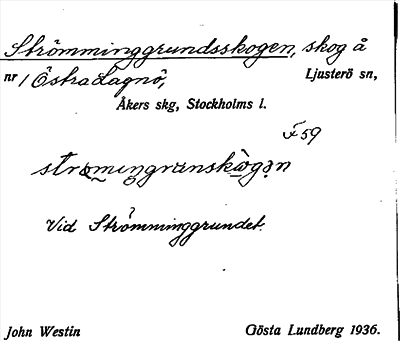 Strömminggrundsskogen, skog å
nr 1 Östra Lagnö, Ljusterö sn,
Åkers skg, Stockholms l.
F 59
Vid Strömminggrundet.
John Westin Gösta Lundberg 1936.